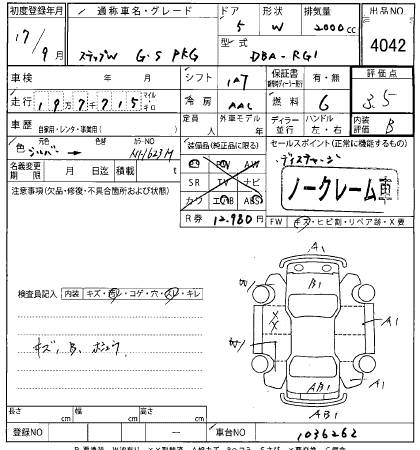 初度登録年月 通称車名・グレード ドア 形状 排気量 出品NO
17/9月 ステップW G・S PKG 5 W 2000cc 4042
型式 DBA-RG1
車検 年 月 シフト IA7 保証書 有・無 評価点
走行 マイル キロ 冷房 AAC 燃料 G 3.5
車歴 自家用・レンタ・事業用( ) 定員 人 外車モデル 年 ディーラー 並行 ハンドル 左・右 内装評価 B
色 シルバー → 色替 カラーNO NH623M 装備品(純正品に限る) セールスポイント(正常に機能するもの)
名義変更期限 月 日迄 積載 t SR TV ナビ
注意事項(欠品・修復・不具合箇所および状態) カワ エアB ABS ノークレーム車
R券 12.980円 FW キズ・ヒビ割・リペア跡・X要
検査員記入 内装 キズ・汚レ・コゲ・穴・スレ・キレ
キズ、B、
A1
B1
W
XX
A1
W
A1
AB1
AB1
長さ cm 幅 cm 高さ cm
登録NO 車台NO 1036262